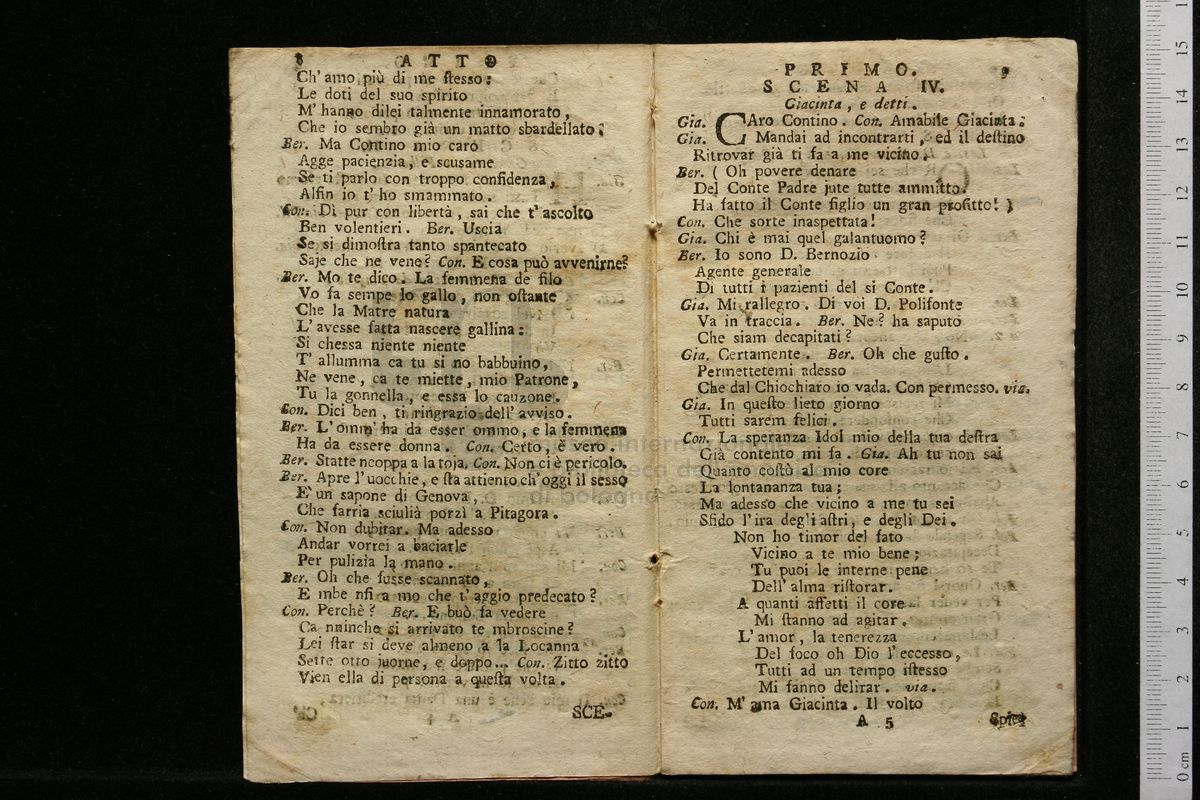 8 ATTO
Ch' amo più di me stesso:
Le doti del suo spirito
M' hanno dilei talmente innamorato,
Che io sembro già un matto sbardellato.
Ber. Ma Contino mio caro
Agge pacienzia, e scusame
Se ti parlo con troppo confidenza,
Alfin io t' ho smammato.
Con. Dì pur con libertà, sai che t' ascolto
Ben volentieri. Ber. Uscia
Se si dimostra tanto spantecato
Saje che ne vene? Con. E cosa può avvenirne?
Ber. Mo te dico. La femmena de filo
Vo fa sempe lo gallo, non ostante
Che la Matre natura
L' avesse fatta nascere gallina:
Si chessa niente niente
T' allumma ca tu si no babbuino,
Ne vene, ca te miette, mio Patrone,
Tu la gonnella, e essa lo cauzone.
Con. Dici ben, ti ringrazio dell' avviso.
Ber. L' omm' ha da esser ommo, e la femmena
Ha da essere donna. Con. Certo, è vero.
Ber. Statte ncoppa a la toja. Con. Non ci è pericolo.
Ber. Apre l' uocchie, e sta attiento ch' oggi il sesso
E' un sapone di Genova,
Che farria sciulià porzì a Pitagora.
Con. Non dubitar. Ma adesso
Andar vorrei a baciarle
Per pulizia la mano.
Ber. Oh che fusse scannato,
E mbe nfi a mo che t' aggio predecato?
Con. Perchè? Ber. E buò fa vedere
Ca nninche si arrivato te mbroscine?
Lei star si deve almeno a la Locanna
Sette otto juorne, e doppo... Con. Zitto zitto
Vien ella di persona a questa volta.
SCE-
PRIMO. 9
SCENA IV.
Giacinta, e detti.
Gia. CAro Contino. Con. Amabile Giacinta.
Gia. Mandai ad incontrarti, ed il destino
Ritrovar già ti fa a me vicino.
Ber. ( Oh povere denare
Del Conte Padre jute tutte ammitto.
Ha fatto il Conte figlio un gran profitto! )
Con. Che sorte inaspettata!
Gia. Chi è mai quel galantuomo?
Ber. Io sono D. Bernozio
Agente generale
Di tutti i pazienti del si Conte.
Gia. Mi rallegro. Di voi D. Polifonte
Va in traccia. Ber. Ne? ha saputo
Che siam decapitati?
Gia. Certamente. Ber. Oh che gusto.
Permettetemi adesso
Che dal Chiochiaro io vada. Con permesso. via.
Gia. In questo lieto giorno
Tutti sarem felici.
Con. La speranza Idol mio della tua destra
Già contento mi fa. Gia. Ah tu non sai
Quanto costò al mio core
La lontananza tua;
Ma adesso che vicino a me tu sei
Sfido l' ira degli astri, e degli Dei.
Non ho timor del fato
Vicino a te mio bene;
Tu puoi le interne pene
Dell' alma ristorar.
A quanti affetti il core
Mi stanno ad agitar.
L' amor, la tenerezza
Del foco oh Dio l' eccesso,
Tutti ad un tempo istesso
Mi fanno delirar. via.
Con. M' ama Giacinta. Il volto
A 5